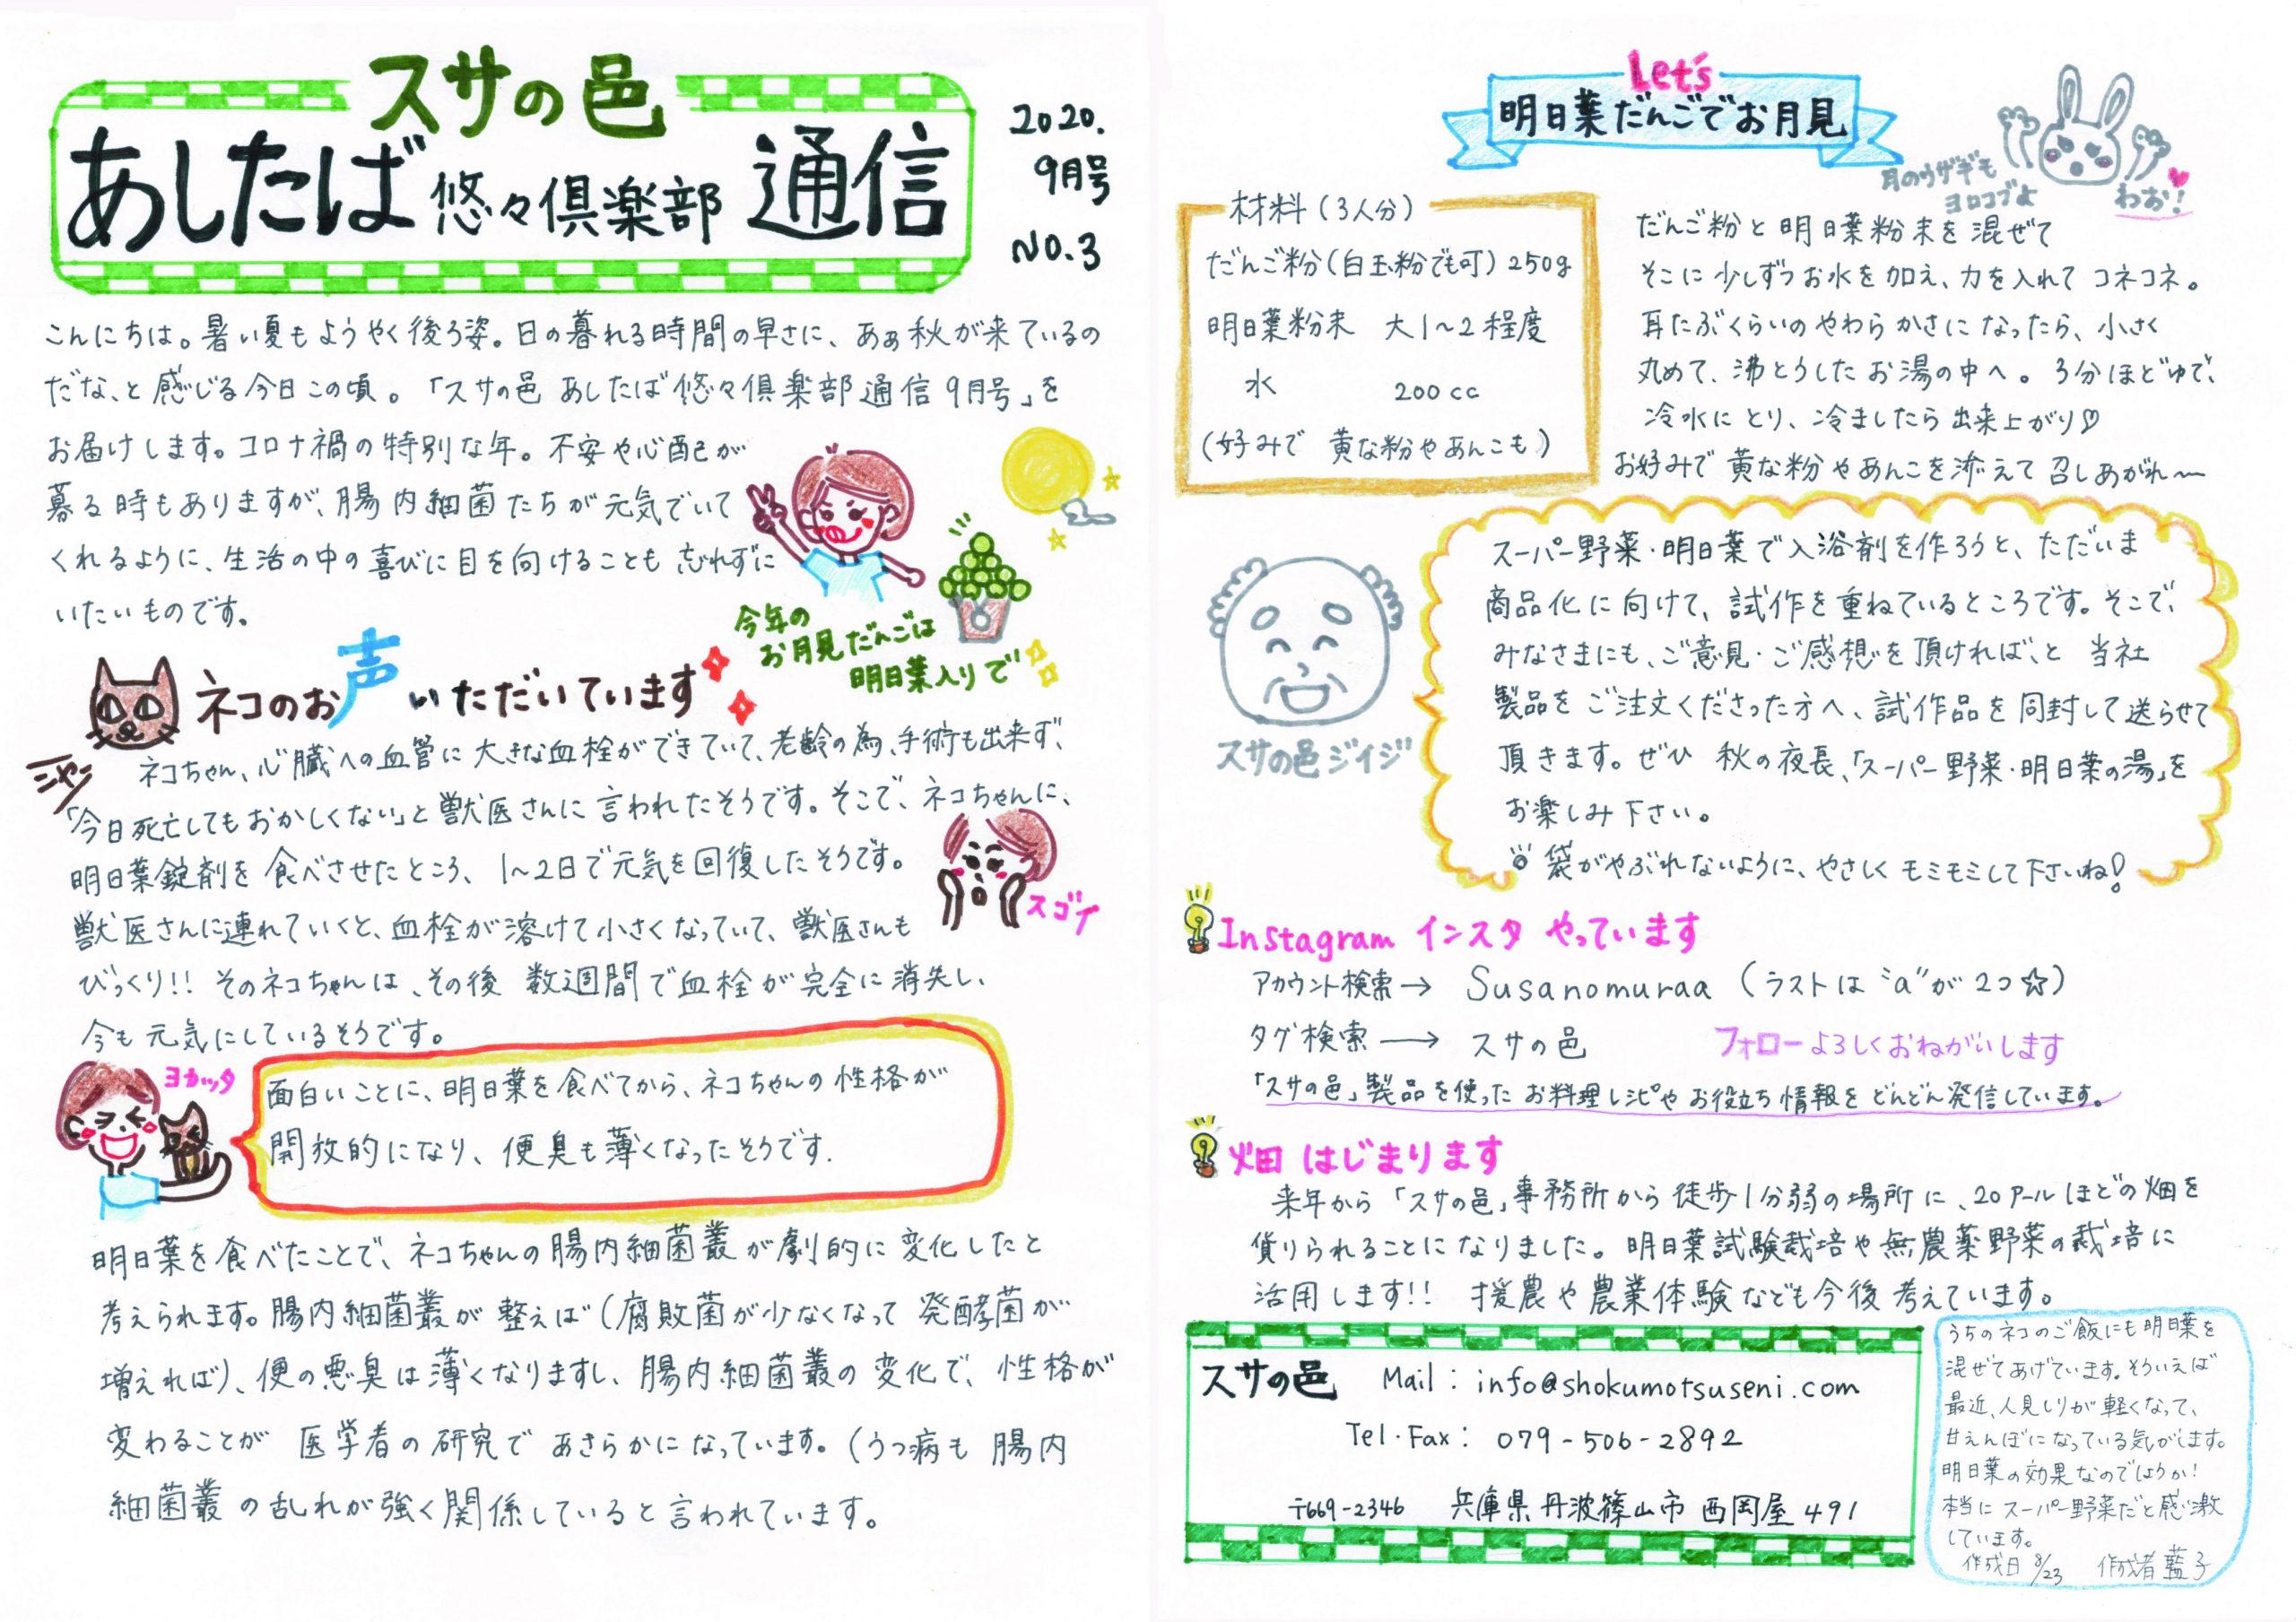 スサの邑
あしたば 悠々倶楽部 通信
2020.
9月号
NO.3
こんにちは。暑い夏もようやく後ろ姿。日の暮れる時間の早さに、あぁ秋が来ているの
だな、と感じる今日この頃。「スサの邑 あしたば悠々倶楽部通信9月号」を
お届けします。コロナ禍の特別な年。不安や心配が
募る時もありますが、腸内細菌たちが元気でいて
くれるように、生活の中の喜びに目を向けることも忘れずに
いたいものです。
今年の
お月見だんごは
明日葉入りで
ネコのお声いただいています
ニャン
ネコちゃん、心臓への血管に大きな血栓ができていて、老齢の為、手術も出来ず、
「今日死亡してもおかしくない」と獣医さんに言われたそうです。そこで、ネコちゃんに、
明日葉錠剤を食べさせたところ、1〜2日で元気を回復したそうです。
獣医さんに連れていくと、血栓が溶けて小さくなっていて、獣医さんも
びっくり!! そのネコちゃんは、その後 数週間で血栓が完全に消失し、
今も元気にしているそうです。
スゴイ
ヨカッタ
面白いことに、明日葉を食べてから、ネコちゃんの性格が
開放的になり、便臭も薄くなったそうです.
明日葉を食べたことで、ネコちゃんの腸内細菌叢が劇的に変化したと
考えられます。腸内細菌叢が整えば(腐敗菌が少なくなって発酵菌が
増えれば)、便の悪臭は薄くなりますし、腸内細菌叢の変化で、性格が
変わることが 医学者の研究であきらかになっています。(うつ病も 腸内
細菌叢の乱れが強く関係していると言われています。
Let's
明日葉だんごでお月見
月のウサギも
ヨロコブよ
わお!
材料(3人分)
だんご粉(白玉粉でも可) 250g
明日葉粉末 大1〜2程度
水 200cc
(好みで 黄な粉やあんこも)
だんご粉と明日葉粉末を混ぜて
そこに少しずつお水を加え、力を入れてコネコネ。
耳たぶくらいのやわらかさになったら、小さく
丸めて、沸とうしたお湯の中へ。3分ほどゆで、
冷水にとり、冷ましたら出来上がり♡
お好みで黄な粉やあんこを添えて召しあがれ〜
スサの邑ジイジ
スーパー野菜・明日葉で入浴剤を作ろうと、ただいま
商品化に向けて、試作を重ねているところです。そこで、
みなさまにも、ご意見・ご感想を頂ければ、と 当社
製品をご注文くださった方へ、試作品を同封して送らせて
頂きます。ぜひ 秋の夜長、「スーパー野菜・明日葉の湯」を
お楽しみ下さい。
袋がやぶれないように、やさしくモミモミして下さいね!
Instagram インスタ やっています
アカウント検索→ Susanomuraa (ラストは"a"が2つ☆)
タグ検索→ スサの邑 フォローよろしくおねがいします
「スサの邑」製品を使ったお料理レシピやお役立ち情報をどんどん発信しています。
畑 はじまります
来年から「スサの邑」事務所から徒歩1分弱の場所に、20アールほどの畑を
借りられることになりました。明日葉試験栽培や無農薬野菜の栽培に
活用します!! 援農や農業体験なども今後考えています。
スサの邑 Mail: info@shokumotsuseni.com
Tel・Fax: 079-506-2892
〒669-2346 兵庫県丹波篠山市西岡屋491
うちのネコのご飯にも明日葉を
混ぜてあげています。そういえば
最近、人見しりが軽くなって、
甘えんぼになっている気がします。
明日葉の効果なのでしょうか!
本当にスーパー野菜だと感激
しています。
作成日 8/23 作成者 藍子